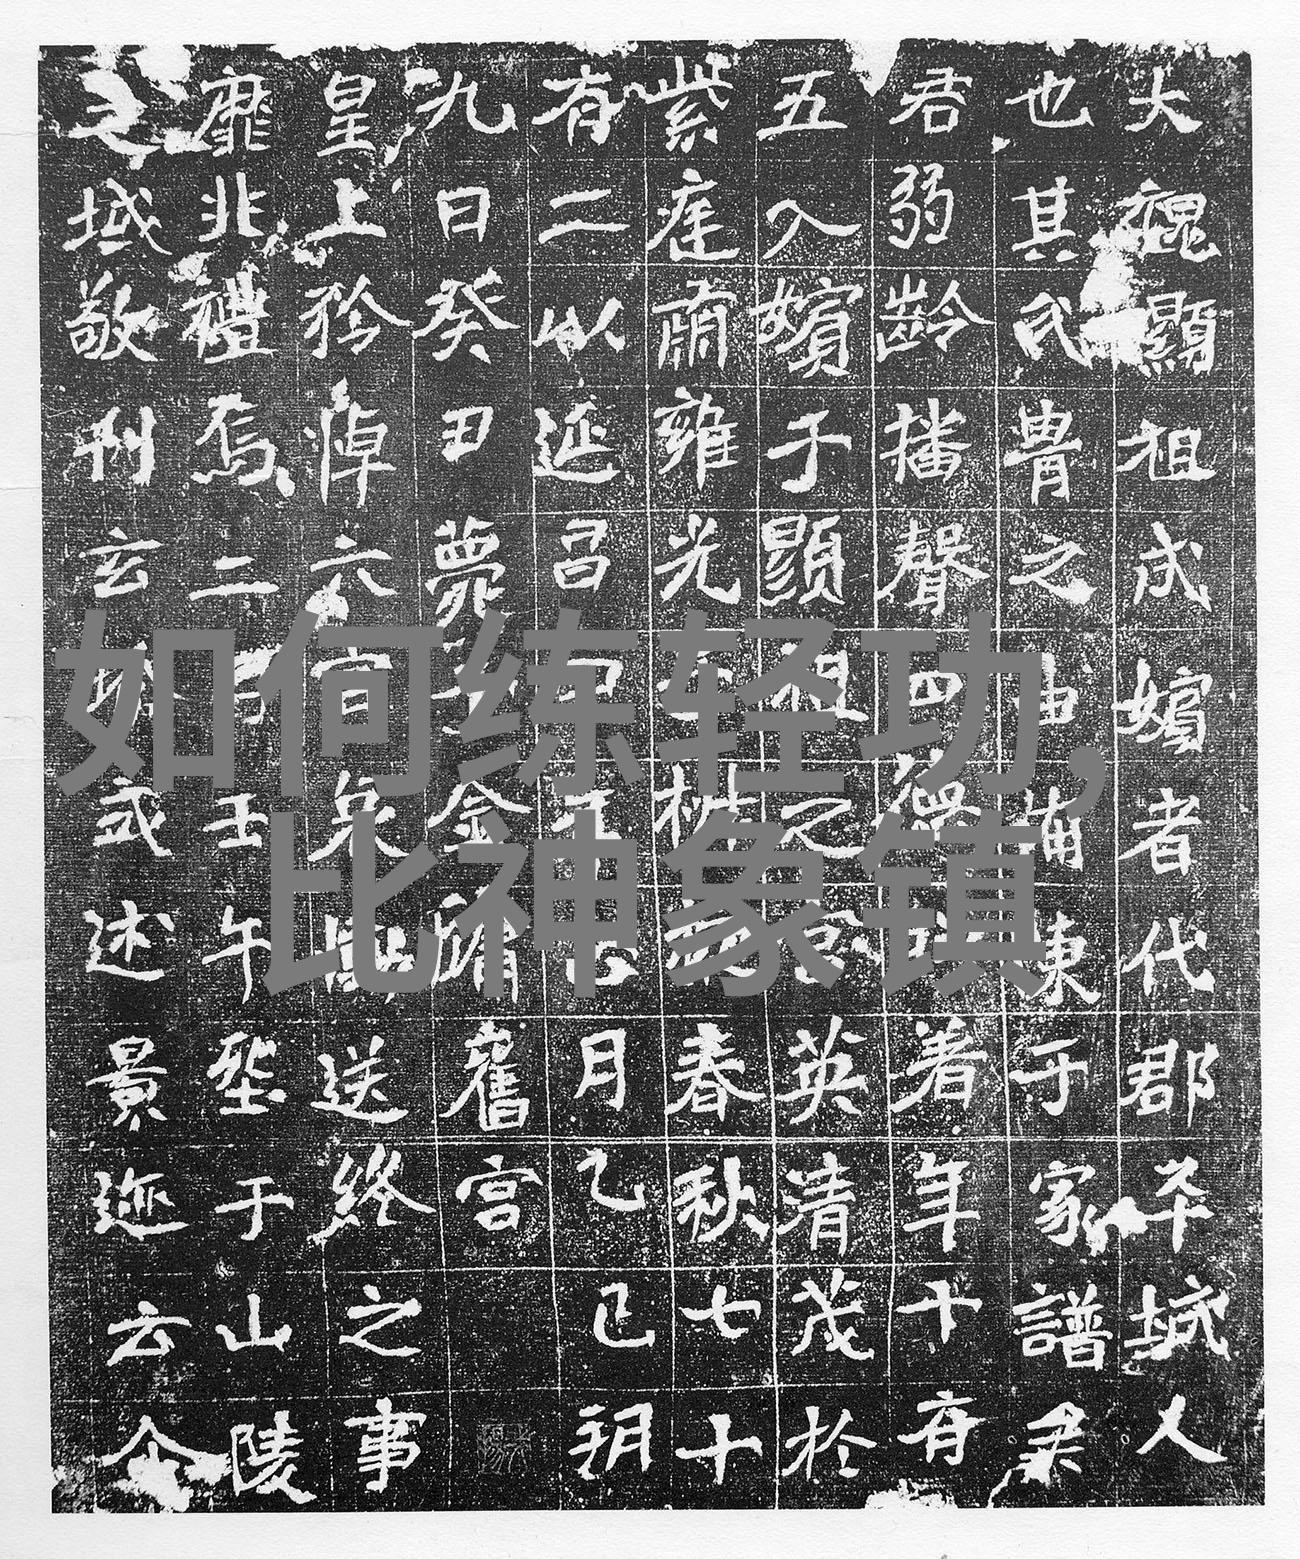 如何练轻功,
比神象镇
大魏顯祖成嬪者代郡平城人
也其氏冑之由備陳于家譜
君弱齡播聲四德著年十有
五入嬪于顯祖之宮英清茂於
紫庭肅雍光椒春秋七十
有二以延昌年月乙巳朔
九日癸丑薨于金墉舊宮
皇上矜悼六宮哀慟送終之事
靡非禮焉二月壬午葬于山陵
之域敬刊玄式述景迹云尒